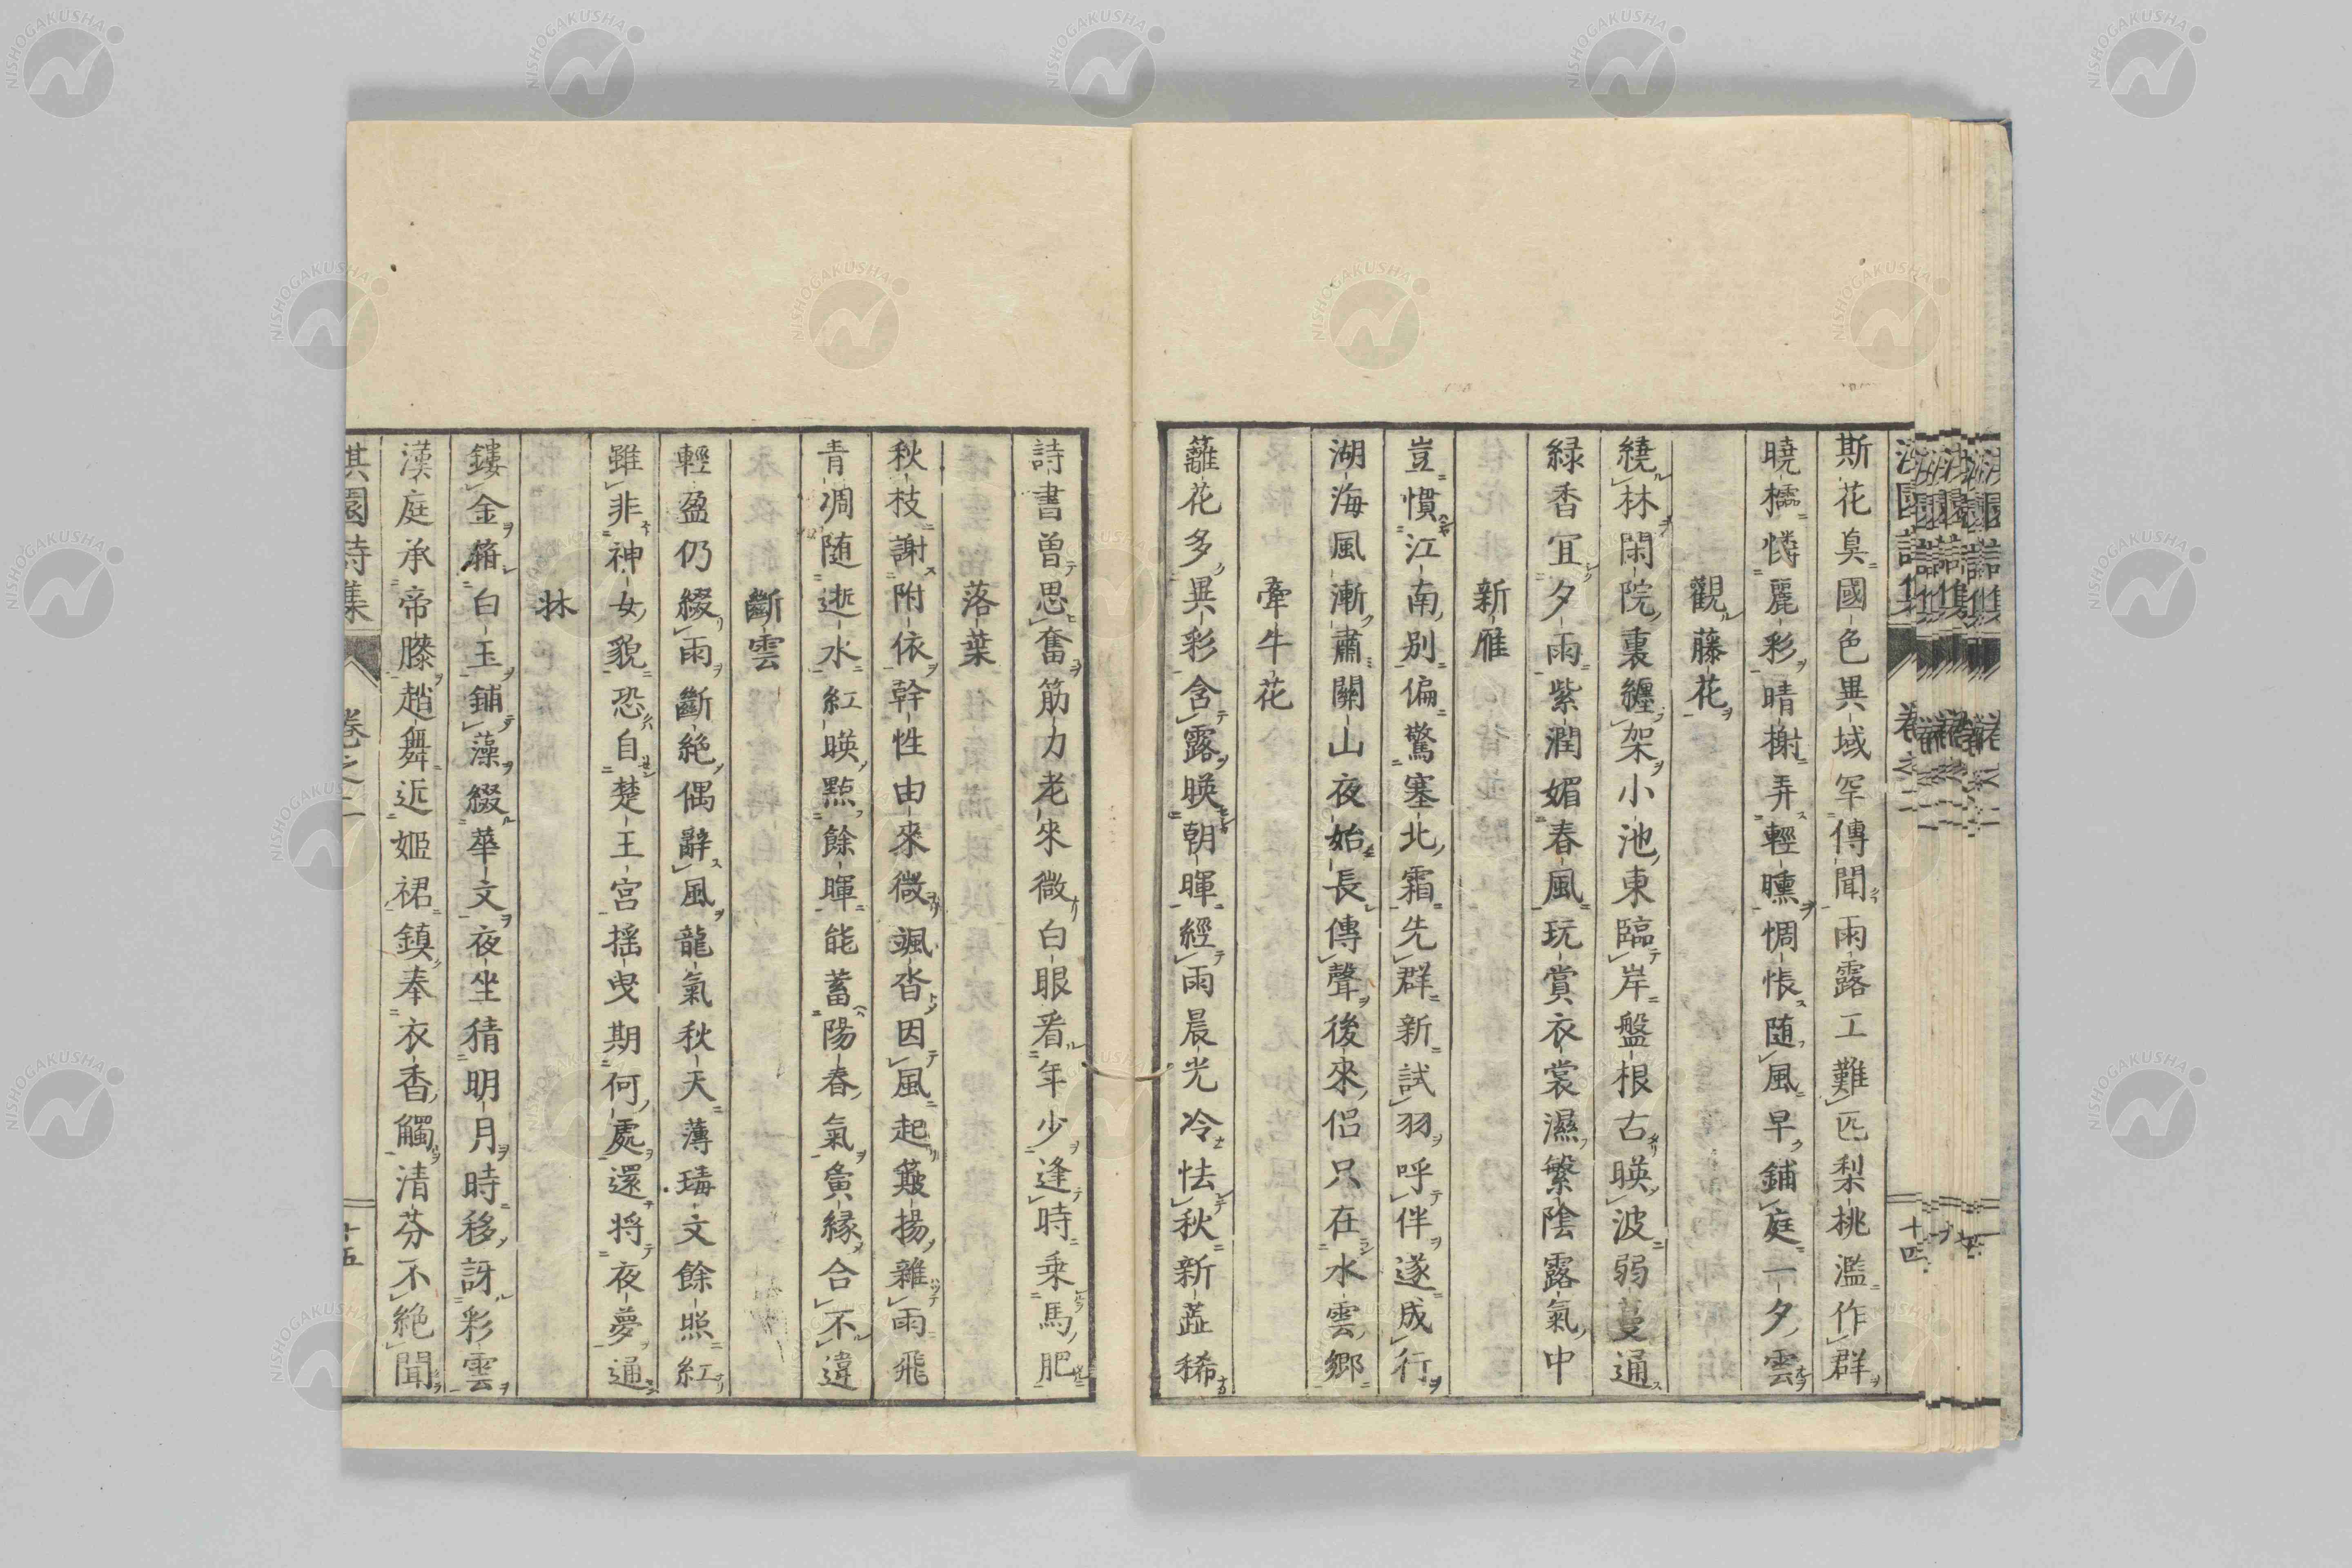 斯花臭國色異域罕傳聞雨露工難匹梨桃濫作群
曉檽憐麗彩晴榭弄輕曛惆悵随風早鋪庭一夕雲
觀藤花
繞林閑院裏纒架小池東臨岸盤根古暎波弱蔓通
緑香宜夕雨紫潤媚春風玩賞衣裳濕繁陰露氣中
新雁
豈慣江南別偏驚塞北霜先群新試羽呼伴遂成行
湖海風漸肅關山夜始長傳聲後來侶只在水雲郷
牽牛花
籬花多異彩含露暎朝暉經雨晨光冷怯秋新蕋稀
詩書曽思奮筋力老來微白眼看年少逢時乗馬肥
落葉
秋枝謝附依幹性由來微颯沓因風起簸揚雜雨飛
青凋随逝水紅暎點餘暉能蓄陽春氣夤縁合不違
斷雲
輕盈仍綴雨斷絶偶辭風龍氣秋天薄瑇文餘照紅
雖非神女貌恐自楚王宮揺曳期何處還将夜夢通
牀
鏤金箱白玉鋪藻綴華文夜坐猜明月時移訝彩雲
漢庭承帝滕趙舞近姫裙鎮奉衣香觸清芬不絶聞
淇園詩集 卷之二 十五